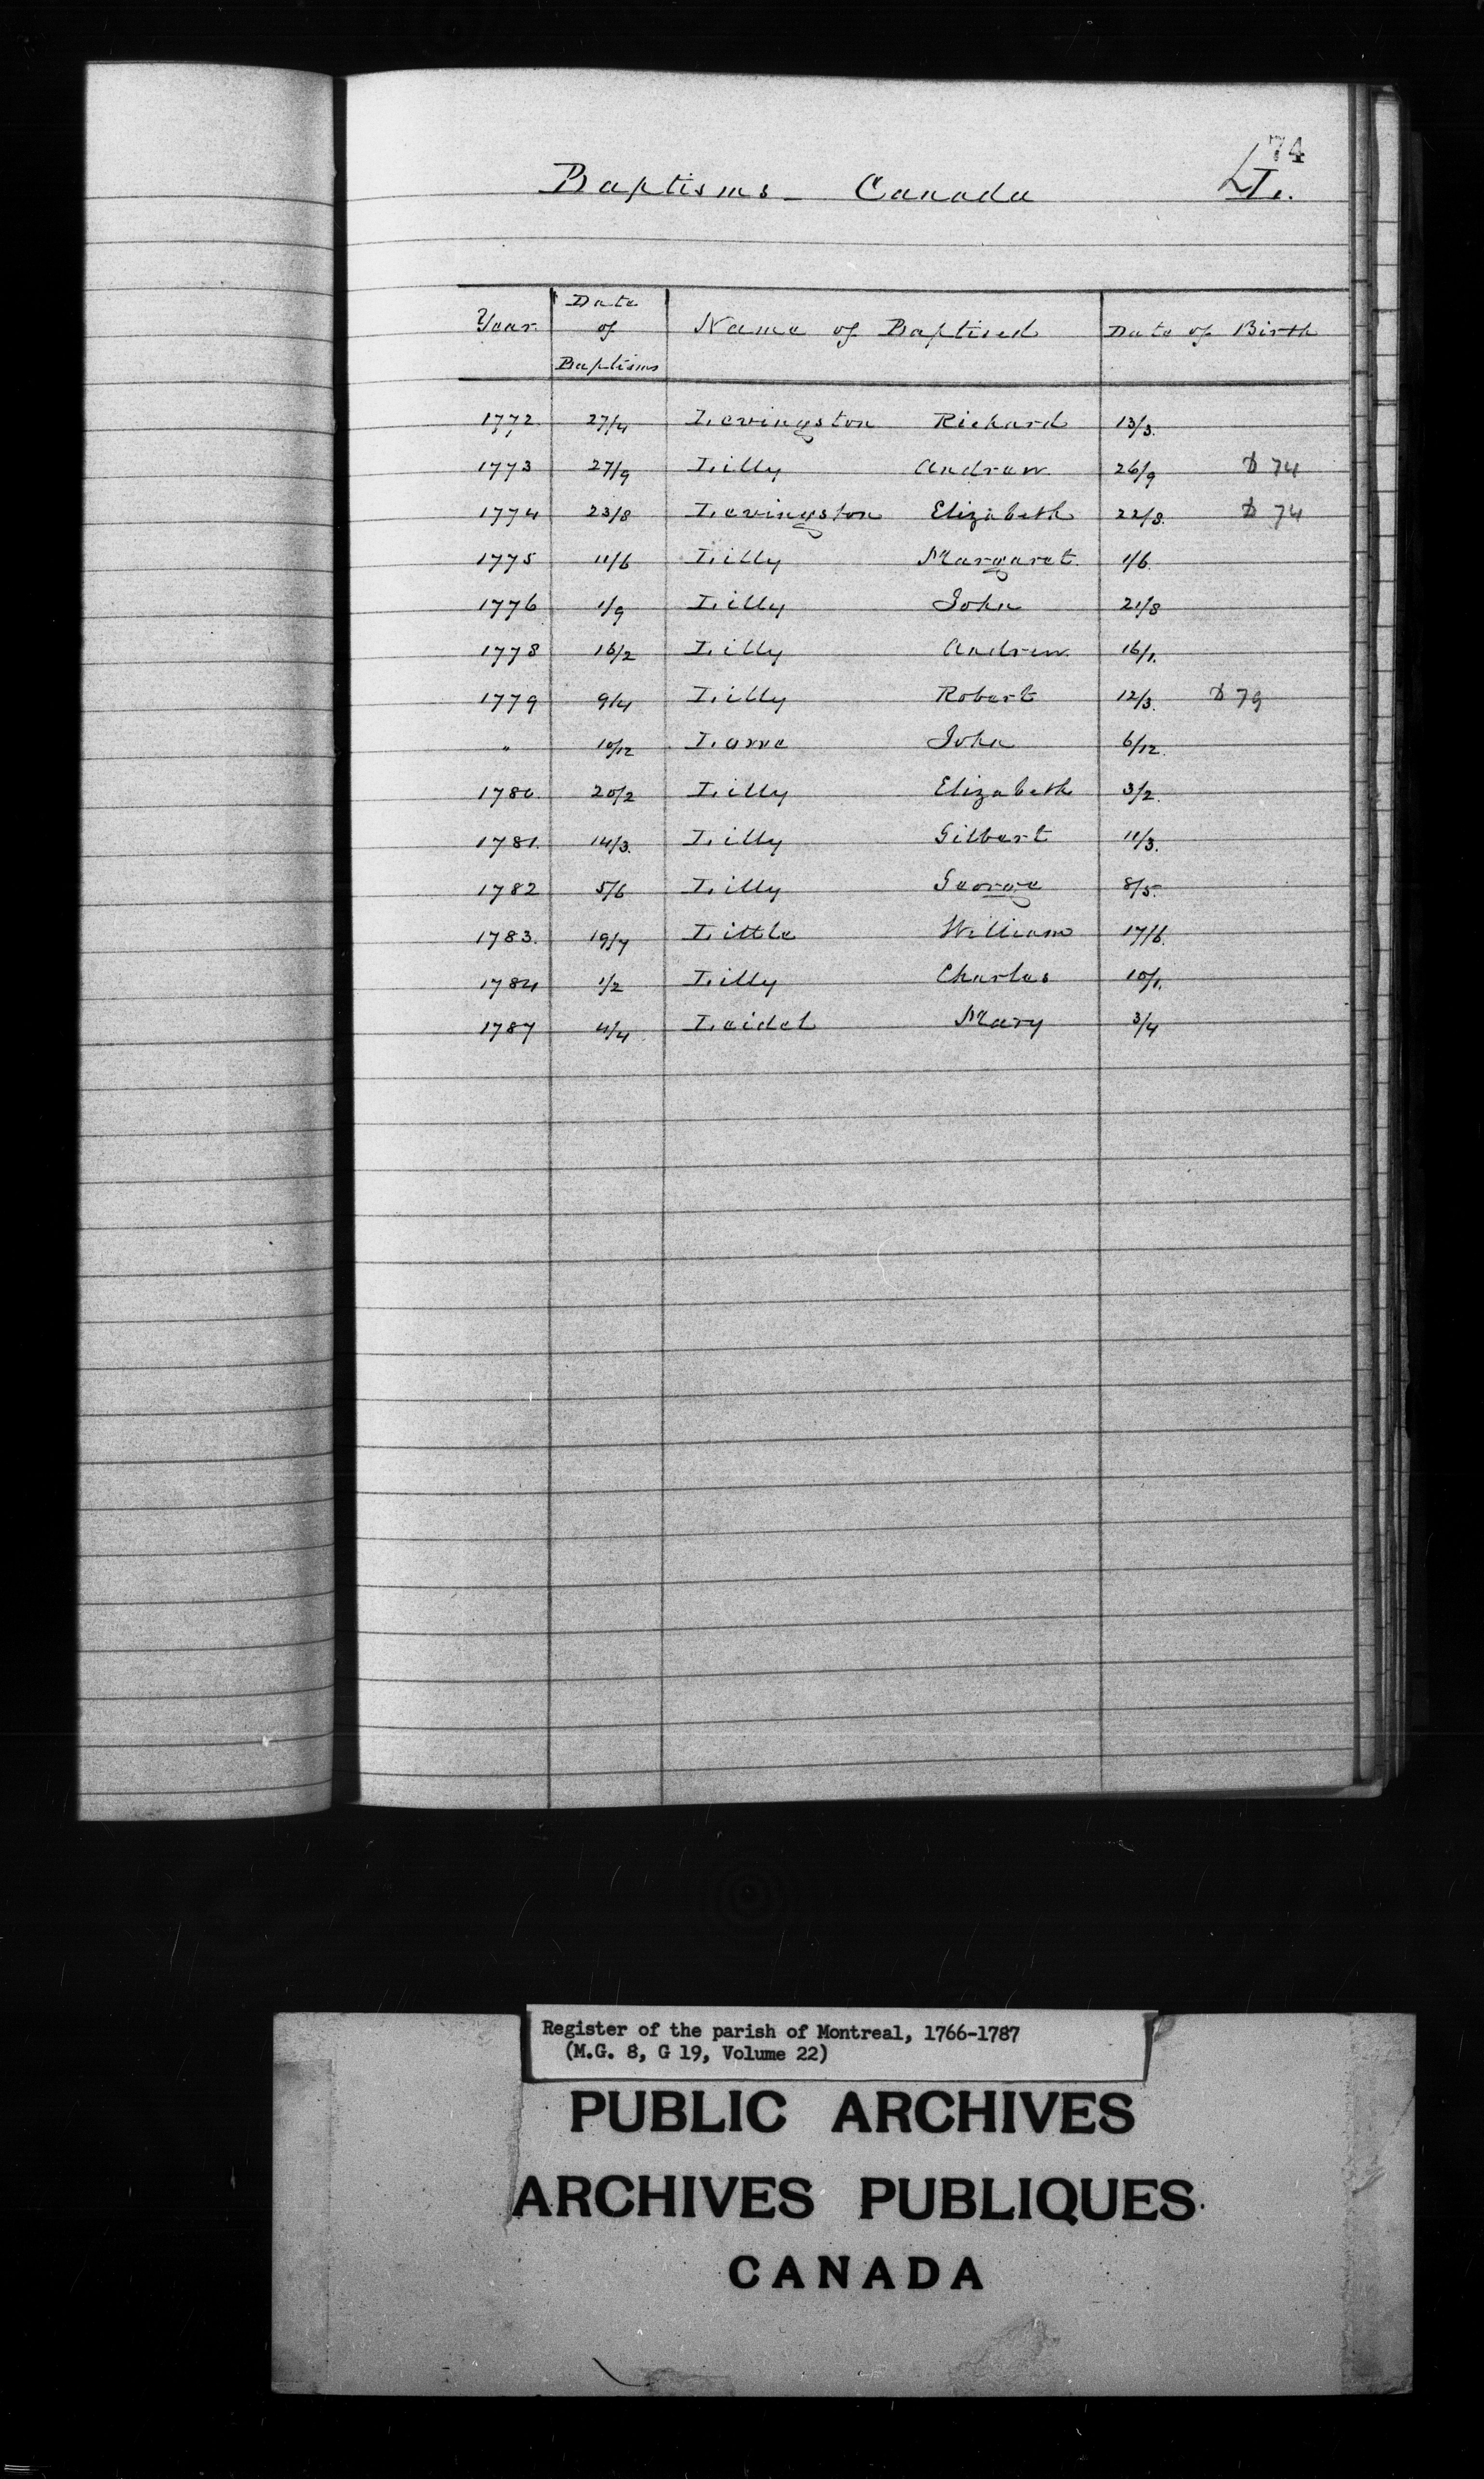 74
Baptisms - Canada L.
Year Date of Baptism Name of Baptised Date of Birth
1772 27/4 Levingston Richard 13/3.
1773 27/9 Lilly Andrew 26/9 D 74
1774 23/8 Levingston Elizabeth 22/8. D 74
1775 11/6 Lilly Margaret 1/6.
1776 1/9 Lilly John 21/8
1778 16/2 Lilly Andrew 16/1.
1779 9/4 Lilly Robert 12/3. D 79
" 10/12 John 6/12.
1780. 20/2 Lilly Elizabeth 3/2.
1781. 14/3. Lilly Gilbert 11/3.
1782 5/6 Lilly George 8/5.
1783. 19/7 Little William 17/6.
1784 1/2 Lilly Charles 10/1.
1787 4/4 Leidel Mary 3/4
Register of the parish of Montreal, 1766-1787
(M.G. 8, G 19, Volume 22)
PUBLIC ARCHIVES
ARCHIVES PUBLIQUES
CANADA